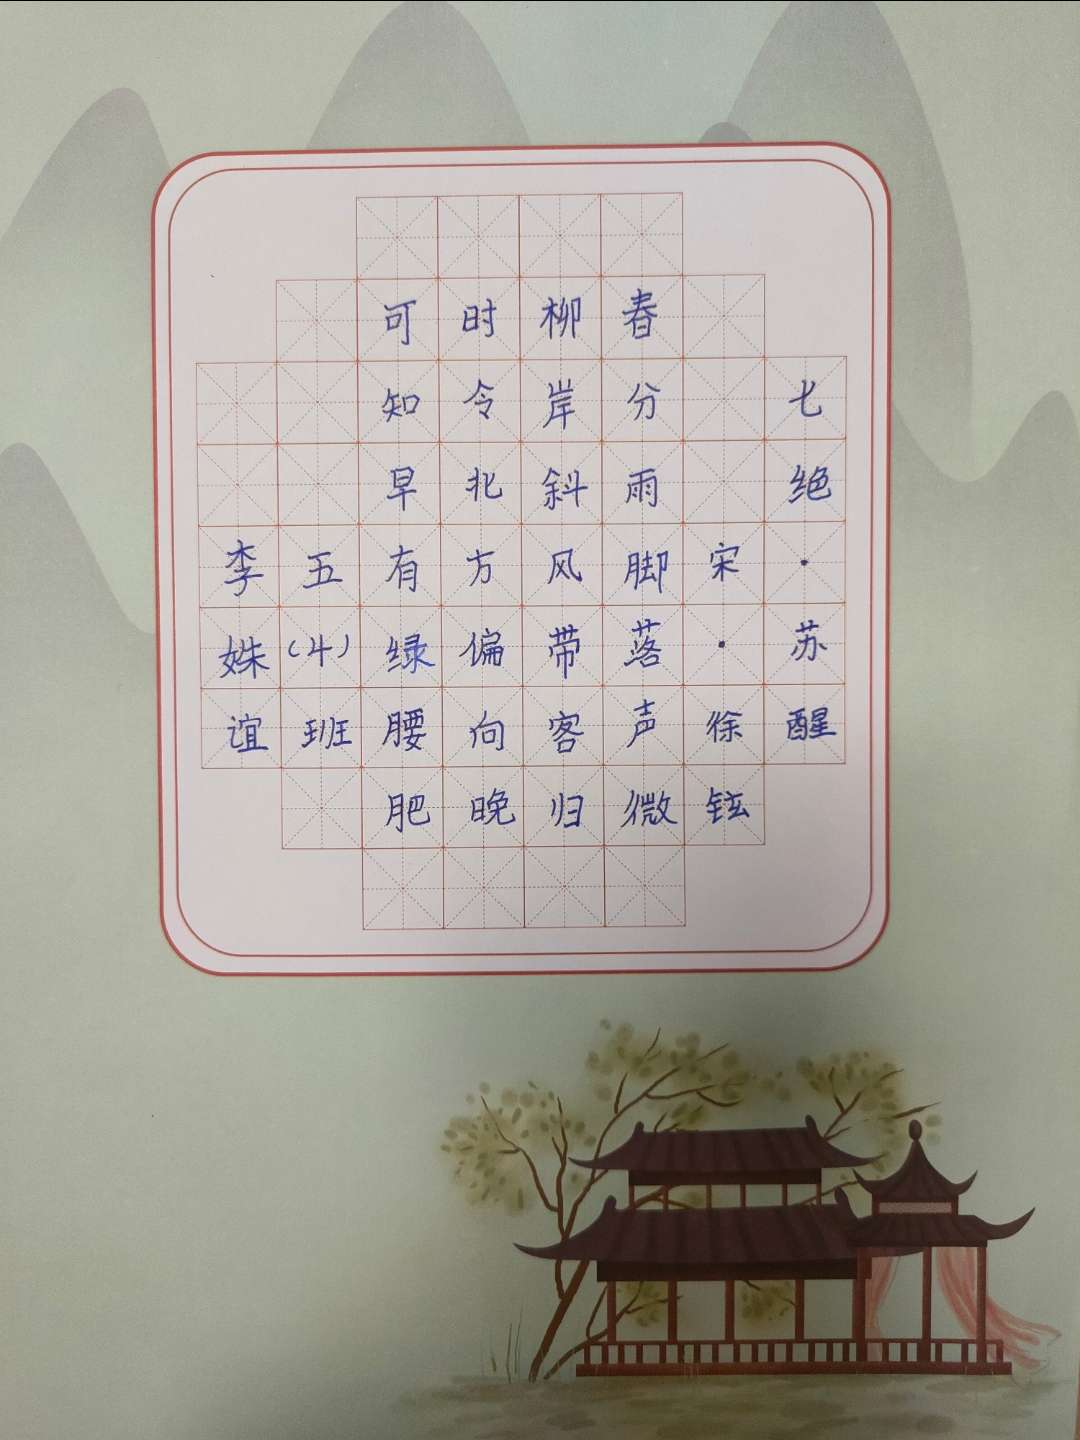 七绝·苏醒
宋·徐铉
春分雨脚落声微
柳岸斜风带客归
时令北方偏向晚
可知早有绿腰肥
五(4)班
李姝谊